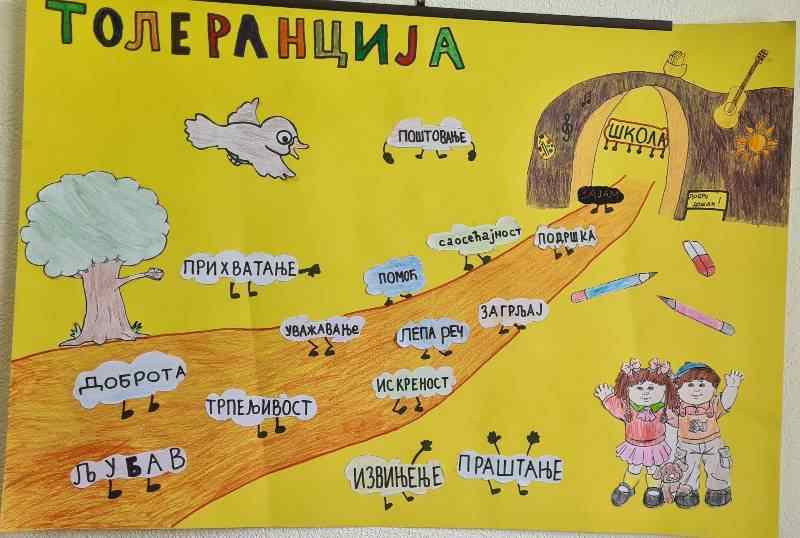 ТОЛЕРАНЦИЈА
ПОШТОВАЊЕ
ШКОЛА
саосећајност
ПОДРШКА
ПРИХВАТАЊЕ
ПОМОЋ
ЗАГРЉАЈ
УВАЖАВАЊЕ
ЛЕПА РЕЧ
ДОБРОТА
ИСКРЕНОСТ
ТРПЕЉИВОСТ
ЉУБАВ
ИЗВИЊЕЊЕ
ПРАШТАЊЕ